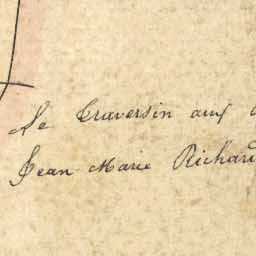 Le Traversin aux
Jean Marie Richard